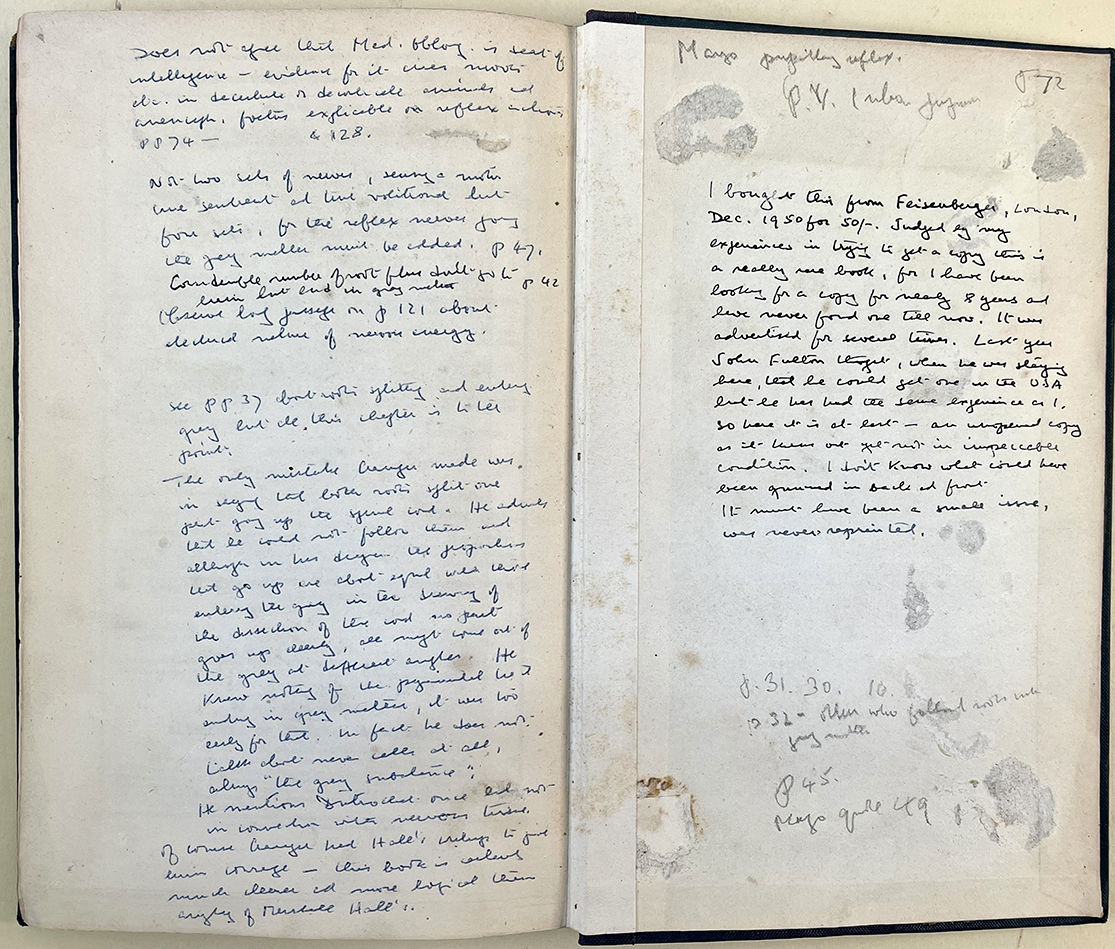 Does not agree that Med. oblong. is seat of
intelligence – evidence for it was movts
etc. in decerebrate or decapitate animals and
anenceph. foetus explicable on reflex actions
pp 74 – & 128.
Not two sets of nerves, sensory & motor
one sentient and the volitional but
four sets, for the reflex nerves going
the grey matter must be added. p 47.
Considerable number of root fibres don't go to p 42
brain but end in grey matter
Observe long passage on p 121 about
electrical nature of nervous energy.
See pp 37 about roots splitting and ending
grey but all this chapter is to the
point.
– The only mistake Grainger made was
in saying that both roots split one
part going up the spinal cord. He admits
that he could not follow them and
although in his diagram the proportions
that go up are about equal with those
entering the grey in the drawing of
the dissection of the cord no part
goes up clearly, all might come out of
the grey at different angles. He
knew nothing of the pyramidal tract
ending in grey matter, it was too
early for that. In fact he does not
talk about nerve cells at all,
always "the grey substance".
He mentions Dutrochet once but not
in connection with nervous tissue.
Of course Grainger had Hall's writings to give
him courage – this book is
much clearer and more logical than
any of Marshall Hall's.
Mayo pupillary reflex.
p 72
p. V.
I bought this from Feisenberger, London,
Dec. 1950 for 50/-. Judged by my
experiences in trying to get a copy this is
a really rare book, for I have been
looking for a copy for nearly 8 years and
have never found one till now. It was
advertised for several times. Last year
John Fulton thought, when he was staying
here, that he could get one in the USA
but he has had the same experience as I.
So here it is at last – an unopened copy
as it turns out yet not in impeccable
condition. I don't know what could have
been gummed in back and front
It must have been a small issue,
was never reprinted.
p. 31. 30. 10.
p 32 – others who followed roots into
grey matter
p 45.
Mayo 49